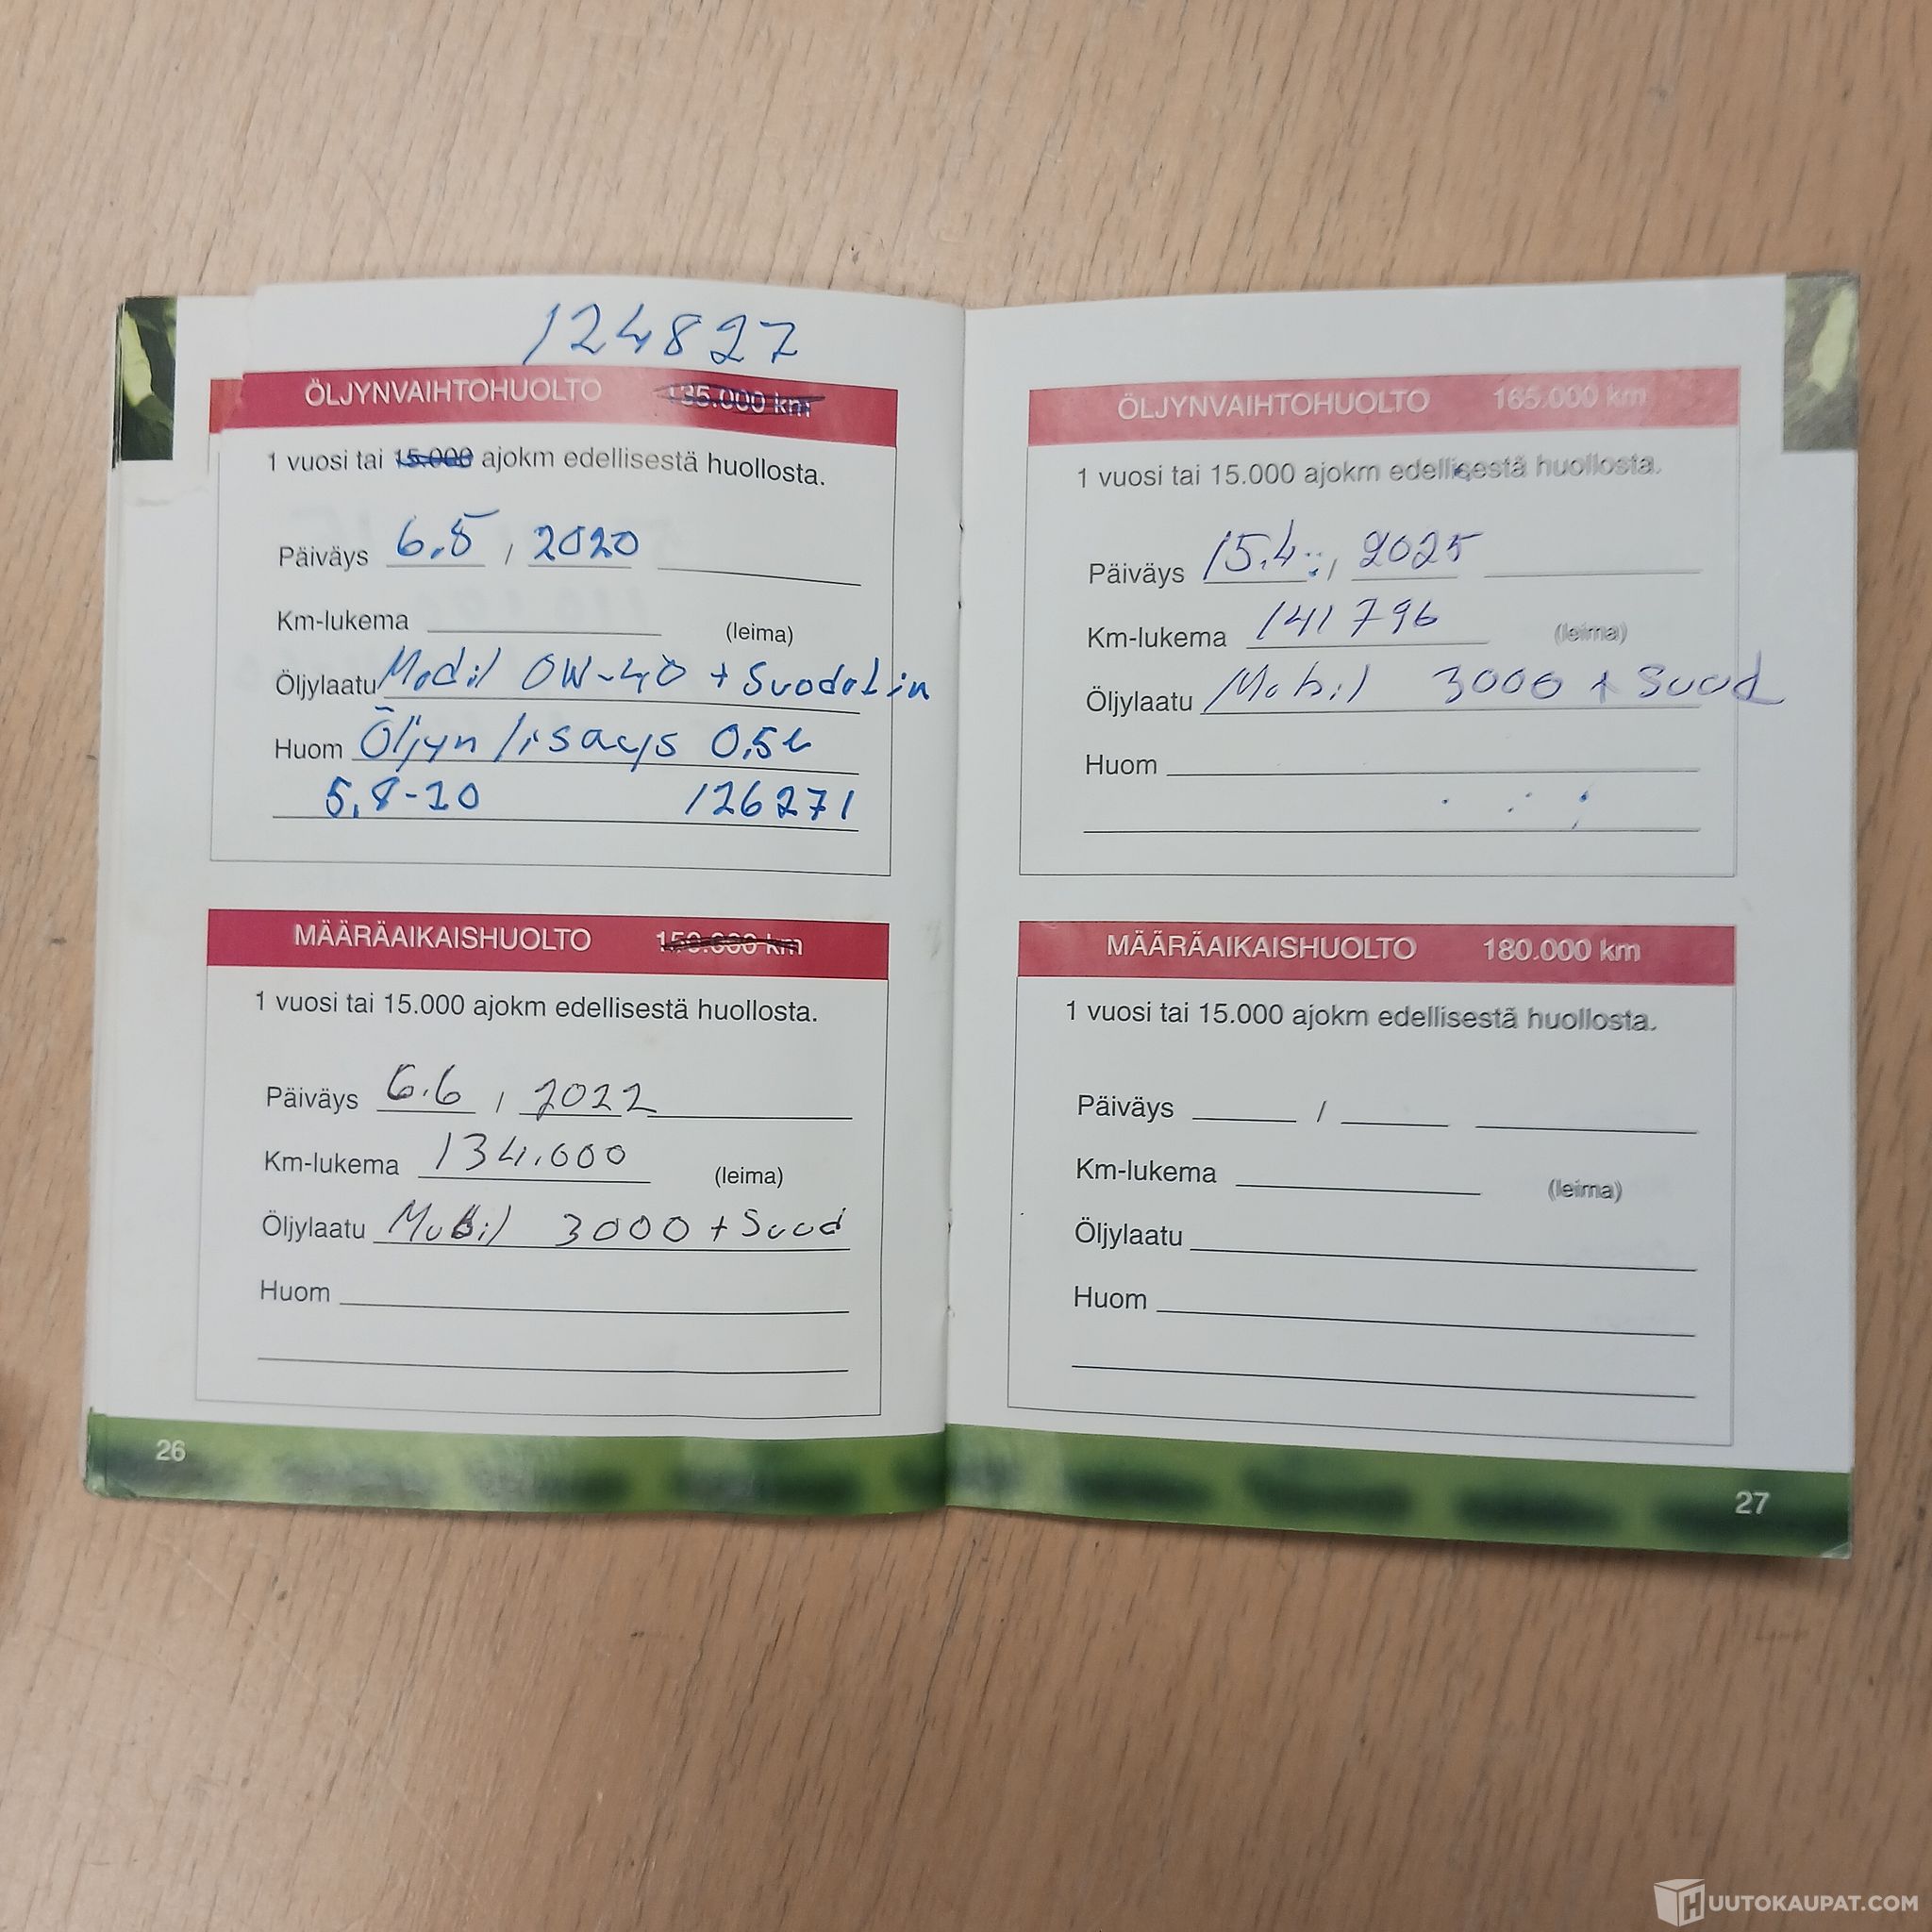 124827
ÖLJYNVAIHTOHUOLTO 135.000 km
1 vuosi tai 15.000 ajokm edellisestä huollosta.
Päiväys 6.5 / 2020
Km-lukema (leima)
Öljylaatu Mobil 0W-40 + Suodatin
Huom Öljyn lisäys 0,5L
5,8-20 126271
MÄÄRÄAIKAISHUOLTO 150.000 km
1 vuosi tai 15.000 ajokm edellisestä huollosta.
Päiväys 6.6 / 2022
Km-lukema 134.000 (leima)
Öljylaatu Mobil 3000 + Suod
Huom
26
ÖLJYNVAIHTOHUOLTO 165.000 km
1 vuosi tai 15.000 ajokm edellisestä huollosta.
Päiväys 15.4. / 2025
Km-lukema 141796 (leima)
Öljylaatu Mobil 3000 + Suod
Huom
MÄÄRÄAIKAISHUOLTO 180.000 km
1 vuosi tai 15.000 ajokm edellisestä huollosta.
Päiväys /
Km-lukema (leima)
Öljylaatu
Huom
27
HUUTOKAUPAT.COM